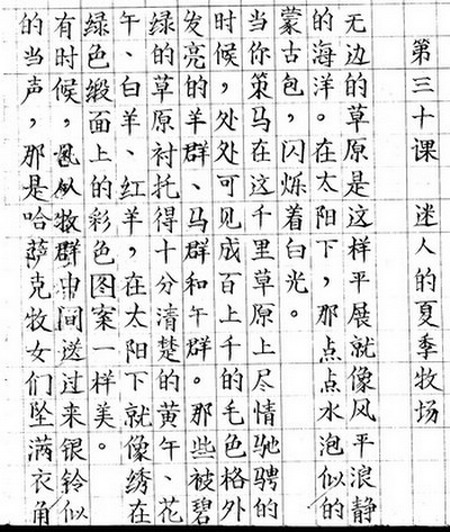 第三十课 迷人的夏季牧场
无边的草原是这样平展就像风平浪静
的海洋。在太阳下，那点点水泡似的
蒙古包，闪烁着白光。
当你策马在这千里草原上尽情驰骋的
时候，处处可见成百上千的毛色格外
发亮的羊群、马群和午群。那些被碧
绿的草原衬托得十分清楚的黄午、花
午、白羊、红羊，在太阳下就像绣在
绿色缎面上的彩色图案一样美。
有时候，风从牧群中间送过来银铃似
的当声，那是哈萨克牧女们坠满衣角